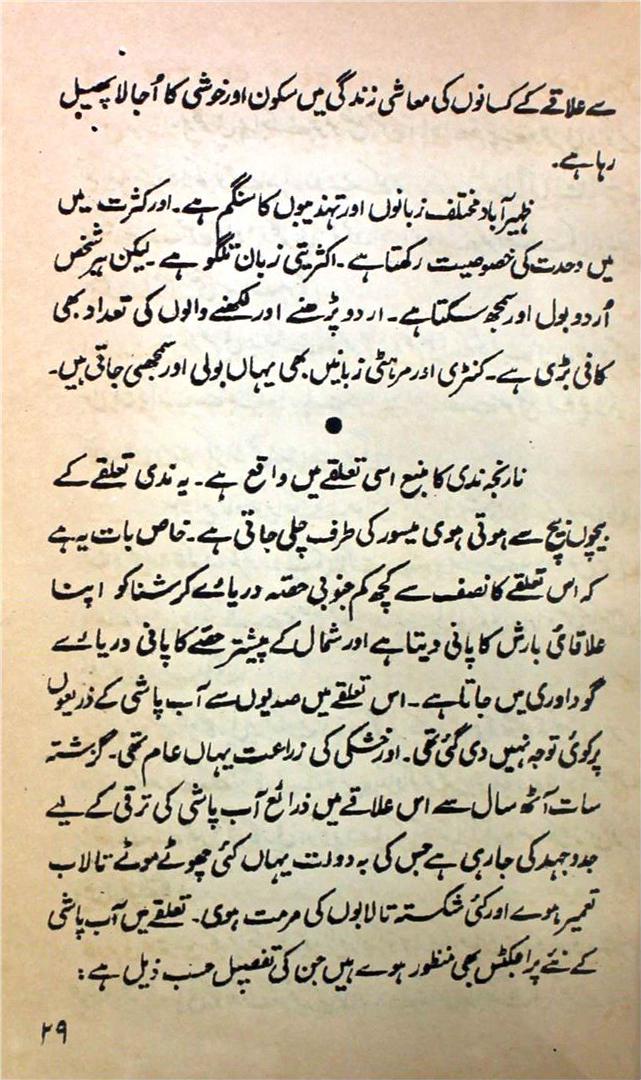 سے علاقے کے کسانوں کی معاشی زندگی میں سکون اور خوشی کا اُجالا پھیل
رہا ہے۔
ظہیر آباد مختلف زبانوں اور تہذیبوں کا سنگم ہے۔ اور کثرت میں
میں وحدت کی خصوصیت رکھتا ہے۔ اکثریتی زبان تلگو ہے لیکن ہر شخص
اُردو بول اور سمجھ سکتا ہے۔ اردو پڑھنے اور لکھنے والوں کی تعداد بھی
کافی بڑی ہے۔ کنڑی اور مرہٹی زبانیں بھی یہاں بولی اور سمجھی جاتی ہیں۔
●
نارنجہ ندی کا منبع اسی تعلقے میں واقع ہے۔ یہ ندی تعلقے کے
بیچوں بیچ سے ہوتی ہوی میسور کی طرف چلی جاتی ہے۔ خاص بات یہ ہے
کہ اس تعلقے کا نصف سے کچھ کم جنوبی حصّہ دریاے کرشنا کو اپنا
علاقائی بارش کا پانی دیتا ہے اور شمال کے بیشتر حصّے کا پانی دریاے
گوداوری میں جاتا ہے۔ اس تعلقے میں صدیوں سے آب پاشی کے ذریعوں
پر کوئی توجہ نہیں دی گئی تھی۔ اور خشکی کی زراعت یہاں عام تھی۔ گزشتہ
سات آٹھ سال سے اس علاقے میں ذرائع آب پاشی کی ترقی کے لیے
جدوجہد کی جارہی ہے جس کی بہ دولت یہاں کئی چھوٹے موٹے تالاب
تعمیر ہوے اور کئی شکستہ تالابوں کی مرمت ہوی۔ تعلقے میں آب پاشی
کے نئے پراجکٹس بھی منظور ہوے ہیں جن کی تفصیل حسب ذیل ہے:
۲۹